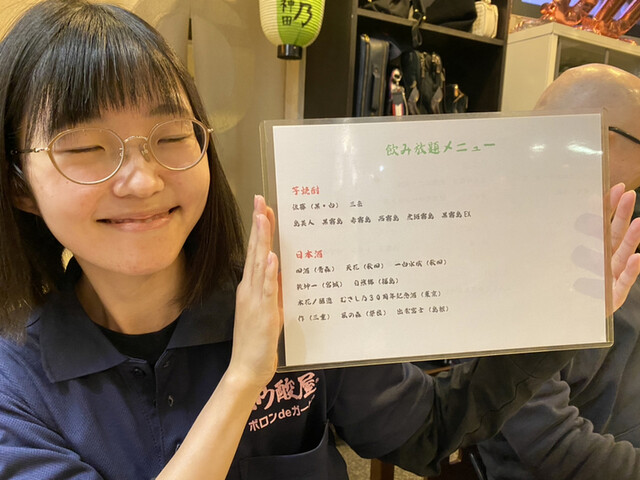 神田
乃
飲み放題メニュー
芋焼酎
佐藤（黒・白） 三岳
島美人 黒霧島 赤霧島 茜霧島 虎斑霧島 黒霧島EX
日本酒
田酒（青森） 天花（秋田） 一白水成（秋田）
乾坤一（宮城） 自然郷（福島）
水花ノ醸造 むさし乃30周年記念酒（東京）
作（三重） 風の森（奈良） 出雲富士（島根）
酸屋
ボロンdeガ